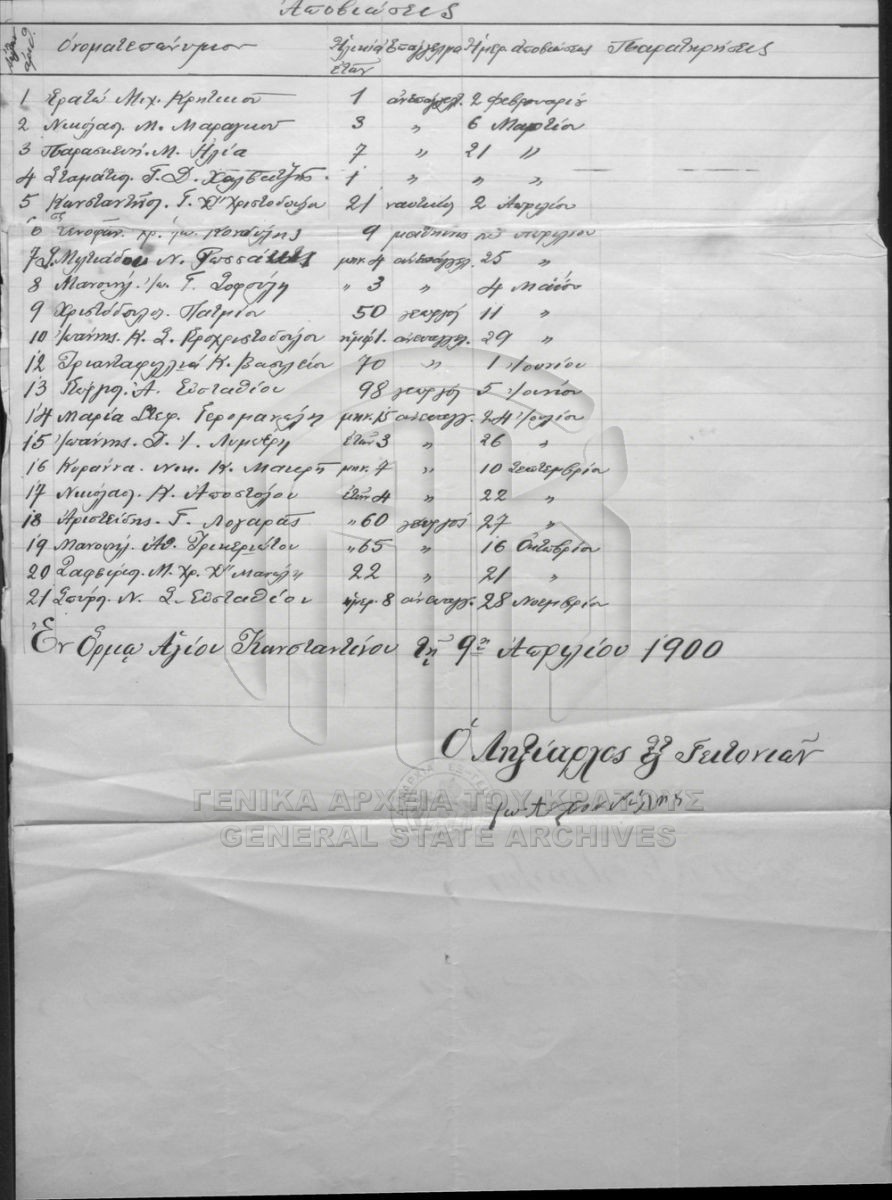 Αποβιώσεις
Αύξων αριθ. Ονοματεπώνυμον Ηλικία ετών Επάγγελμα Ημερ. αποβιώσεως Παρατηρήσεις
1 Ερατώ Μιχ. Κρητικού 1 ανεπάγγελ. 2 Φεβρουαρίου
2 Νικόλαος Μ. Μαραγκού 3 " 6 Μαρτίου
3 Παρασκευή Μ. Ηλία 7 " 21 "
4 Σταμάτιος Γ. Δ. 1 " " "
5 Κωνσταντίνος Γ. Χ" Χριστοδούλου 21 ναυτικός 2 Απριλίου
6 Ξενοφών Χρ. Ιω. Κονδύλης 9 μαθητής Απριλίου
7 Μιλτιάδου Ν. μην. 4 ανεπάγγελ. 25 "
8 Μανουήλ Ιω. Γ. Σοφούλη " 3 " 4 Μαΐου
9 Χριστόδουλος Πατμίου 50 γεωργός 11 "
10 Ιωάννης Κ. Σ. Προχριστοδούλου ημερ. 1. ανεπαγγ. 29 "
12 Τριανταφυλλιά Κ. Βασιλείου 70 " 1 Ιουνίου
13 Γεώργιος Α. Ευσταθίου 98 γεωργός 5 Ιουνίου
14 Μαρία Στεφ. Γερομανώλη μην. 15 ανεπαγγ. 24 Ιουλίου
15 Ιωάννης Δ. Ι. Λυμπέρη ετών 3 " 26 "
16 Κυράννα Νικ. Κ. μην. 7 " 10 Σεπτεμβρίου
17 Νικόλαος Κ. Αποστόλου ετών 4 " 22 "
18 Αριστείδης Γ. Λογαράς " 60 γεωργός 27 "
19 Μανουήλ Αθ. Τρικεριώτου " 65 " 16 Οκτωβρίου
20 Σαφείριος Μ. Χρ. Χ" Μανώλη 22 " 21 "
21 Σπύρος Ν. Σ. Ευσταθίου ημερ. 8 ανεπαγγ. 28 Νοεμβρίου
Εν Όρμω Αγίου Κωνσταντίνου τη 9η Απριλίου 1900
Ο Ληξίαρχος Γειτονιών
ΓΕΝΙΚΑ ΑΡΧΕΙΑ ΤΟΥ ΚΡΑΤΟΥΣ
GENERAL STATE ARCHIVES